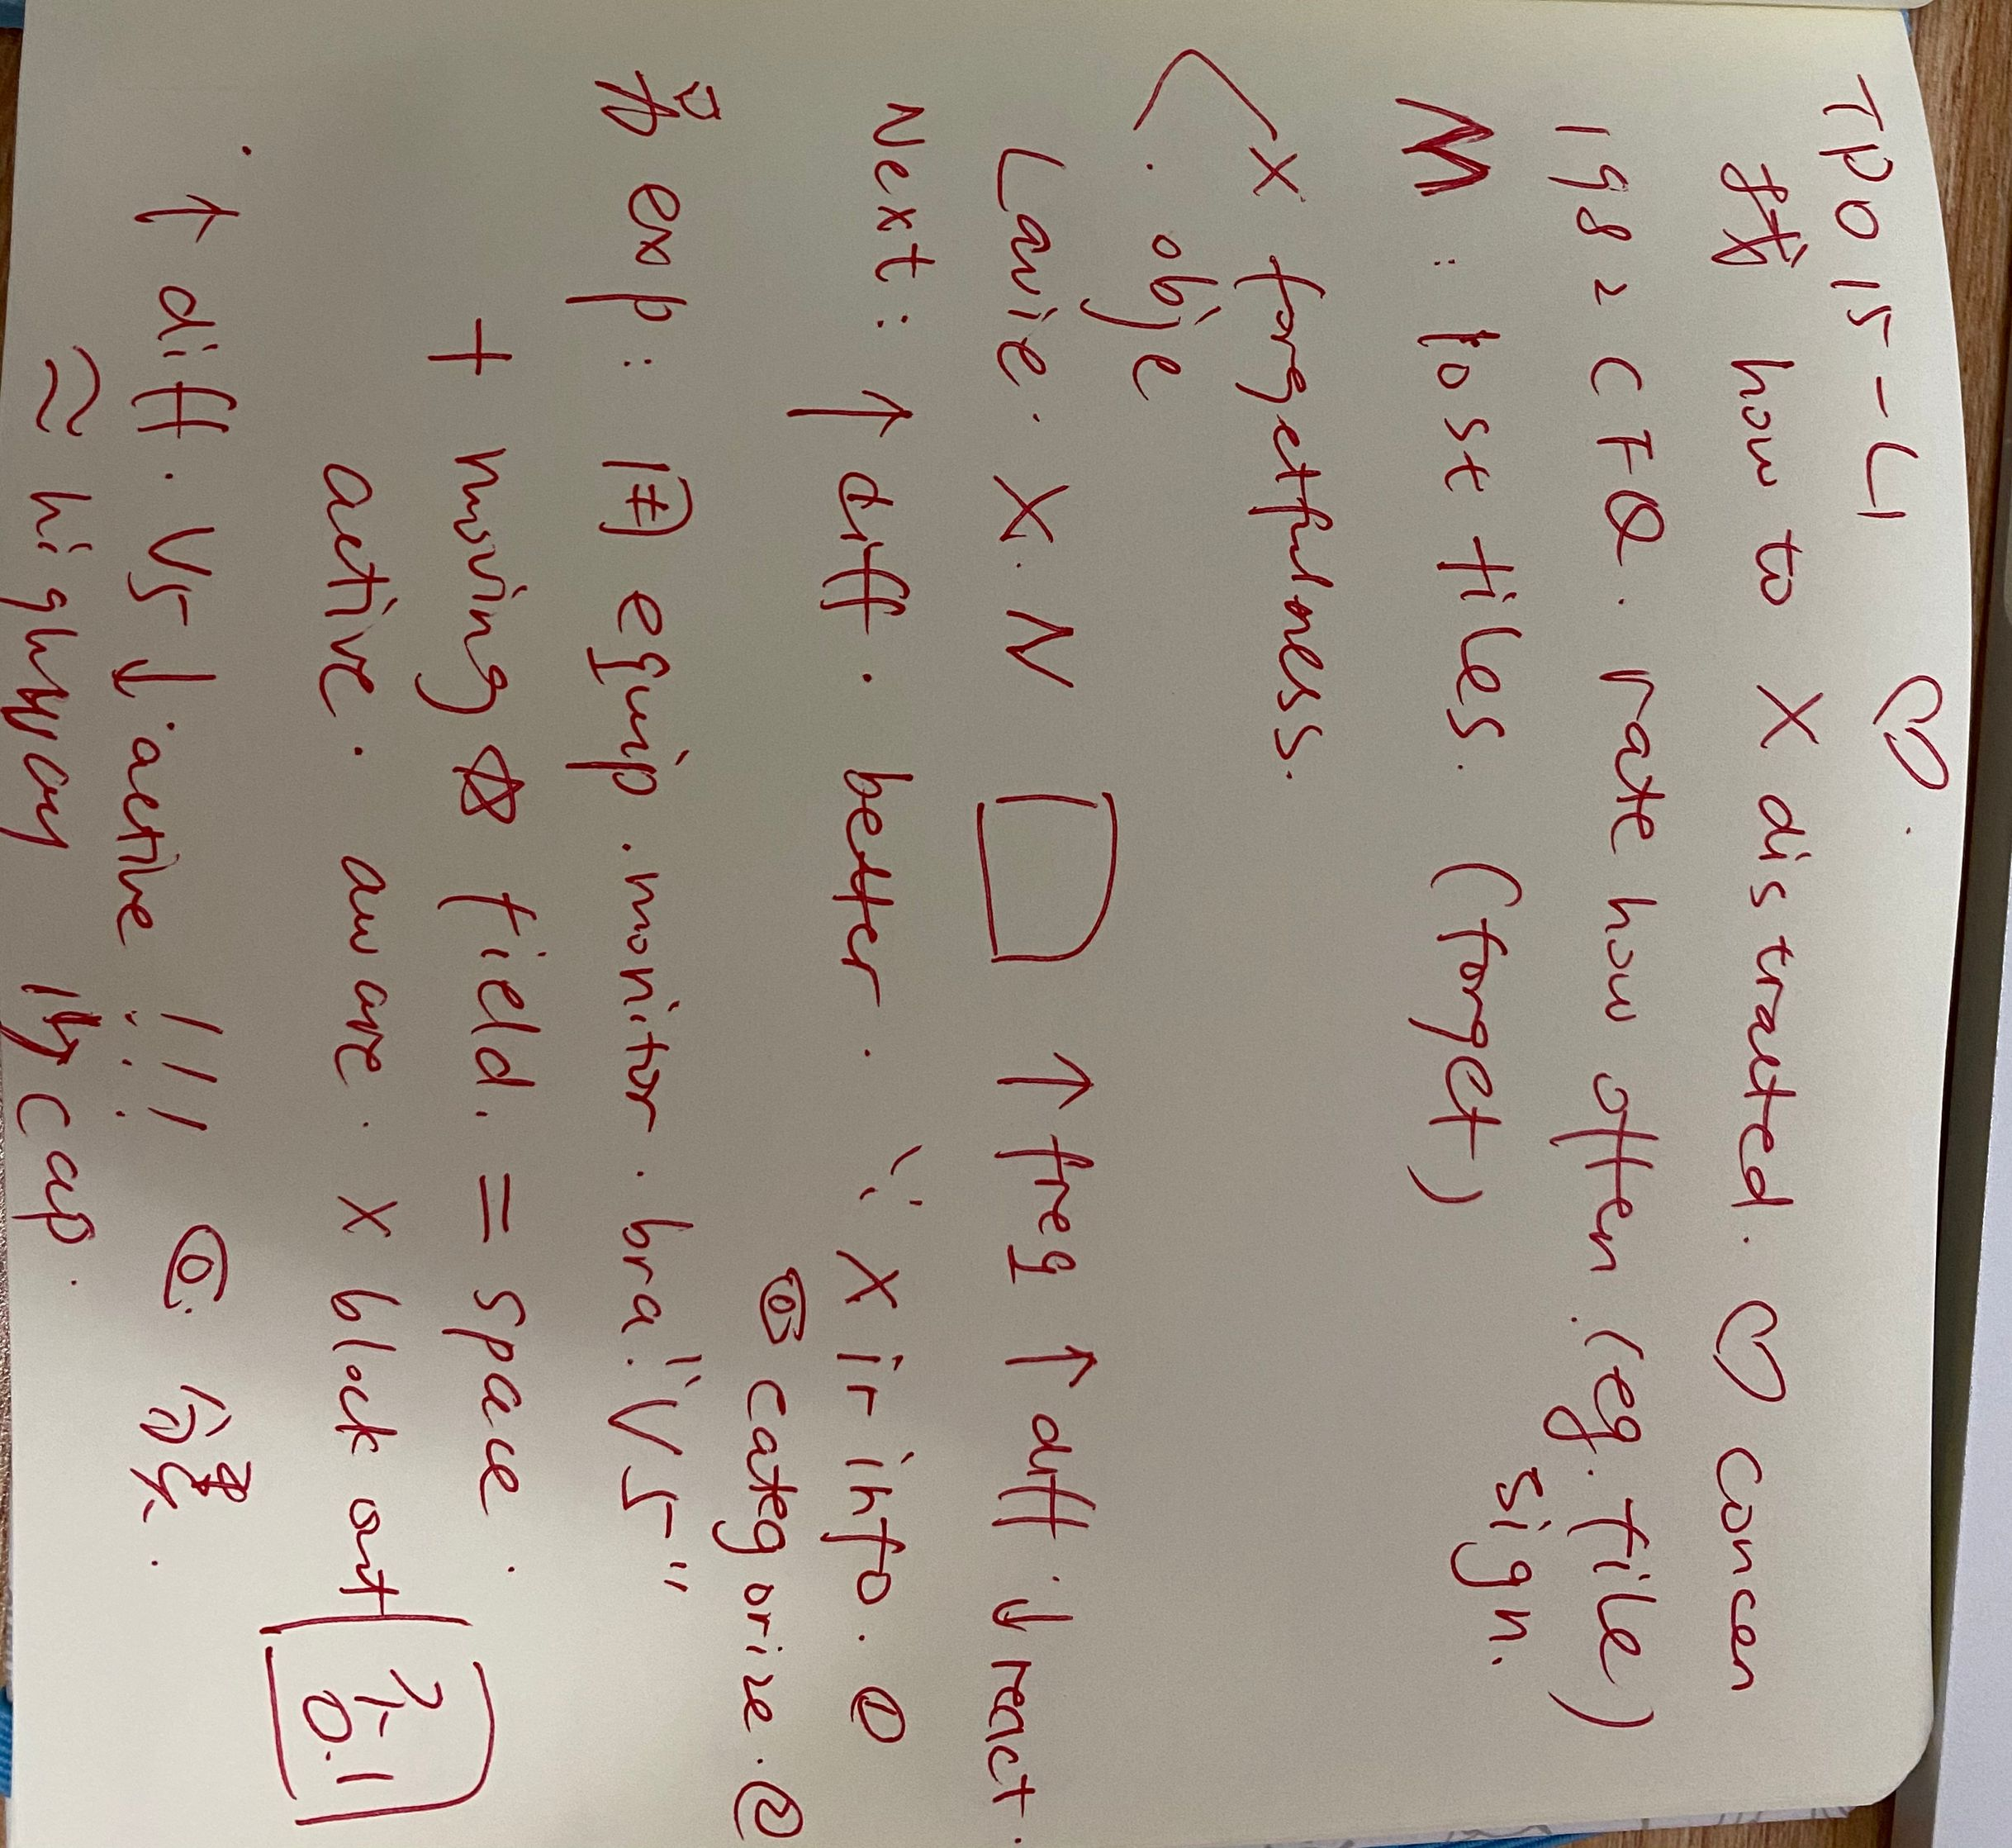 TPO 15 - L1 ♡.
how to X distracted. ♡ concen
1982 CFQ. rate how often. (eg. file)
sign.
M: lost files. (forget)
X forgetfulness.
. obje
Lavie. X. N ↑ freq ↑ diff. ↓ react.
Next: ↑ diff. better. ∵ X ir info. ①
categorize. ②
exp: equip. monitor. bra. "VS"
+ moving ☆ field. = space.
active. aware. x block out
0.1
. ↑ diff. VS ↓ active !!!
≈ highway cap.